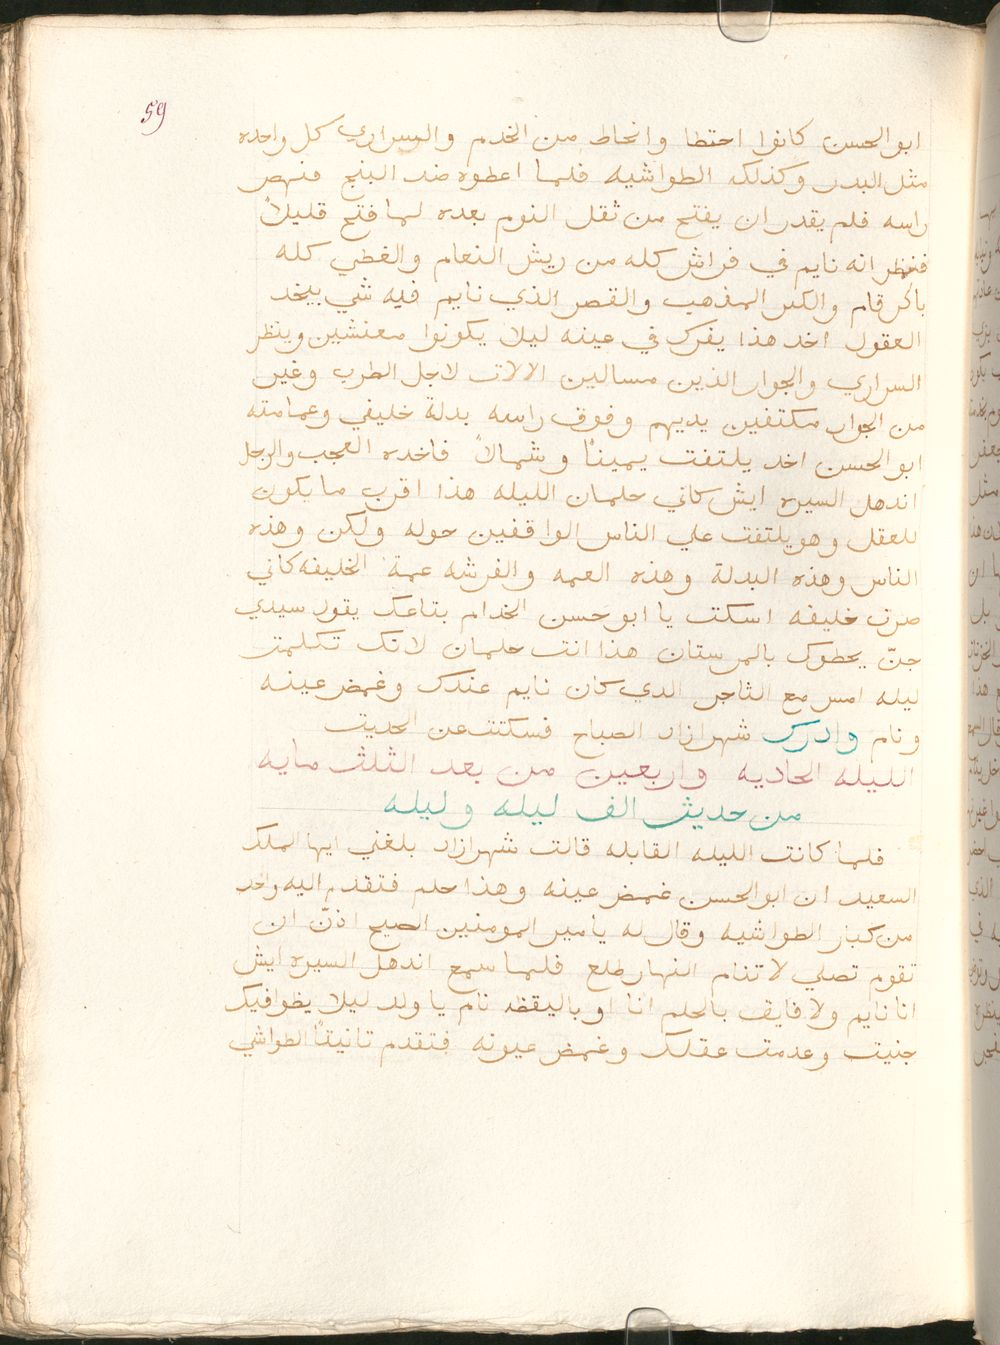 59
ابو الحسن كانوا احتطا وانحاط من الخدم والسراري كل واحده
مثل البدر وكذلك الطواشيه فلما اعطوه ضد البنج فنهض
راسه فلم يقدر ان يفتح من ثقل النوم بعده لما فتح قليلاً
فنظر انه نايم في فراش كله من ريش النعام والغطي كله
باكر قام والكبر المذهب والقصر الذي نايم فيه شي ييخد
العقول اخد هذا يفرك في عينه ليلا يكونوا معنشين وينظر
السراري والجوار الذين مسالين الالات لاجل الطرب وغير
من الجوار مكتفين يديهم وفوق راسه بدلة خليفي وعمامته
ابو الحسن اخد يلتفت يميناً وشمالاً فاخده العجب والرجل
اندهل السيره ايش كاني حلمان الليله هذا اقرب ما يكون
للعقل وهو يلتفت علي الناس الواقفين حوله ولكن وهذه
الناس وهذه البدلة وهذه العمه والفرشه عمة الخليفه كاني
صرت خليفه اسكت يا ابو حسن الخدام بتاعك يقول سيدي
جنّ يحطوك بالمرستان هذا انت حلمان لانك تكلمت
ليله امس مع التاجر الدي كان نايم عندك وغمض عينه
ونام وادرك شهرازاد الصباح فسكتت عن الحديت
الليله الحاديه واربعين من بعد الثلث مايه
من حديث الف ليله وليله
فلما كانت الليله القابله قالت شهرازاد بلغني ايها الملك
السعيد ان ابو الحسن غمض عينه وهذا حلم فتقدم اليه واحد
من كبار الطواشيه وقال له يامير المومنين الصبح اذنّ ان
تقوم تصلي لا تنام النهار طلع فلما سمع اندهل السيره ايش
انا نايم ولا فايق بالحلم انا او باليقظه نام يا ولد ليلا يظوا فيك
جنيت وعدمت عقلك وغمض عيونه فتقدم تانيتاً الطواشي